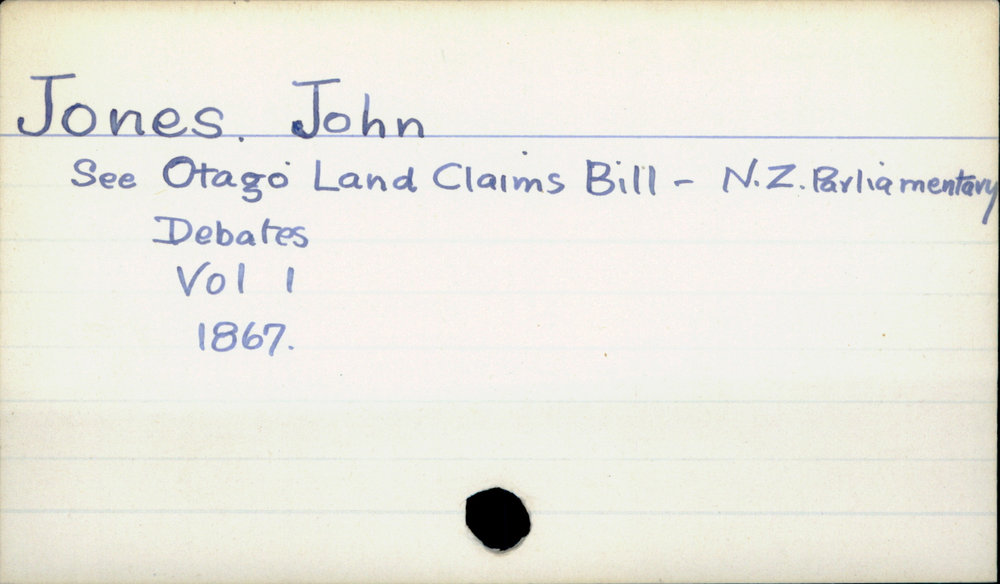 Jones. John
See Otago Land Claims Bill - N.Z. Parliamentary
Debates
Vol 1
1867.